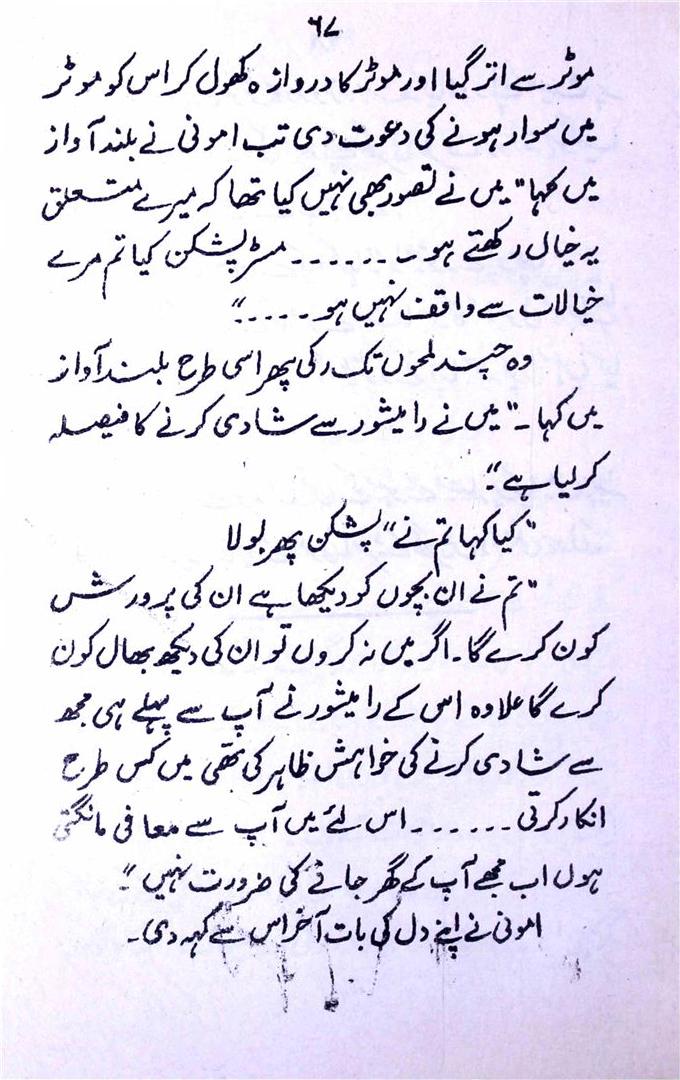 ۶۷
موٹر سے اتر گیا اور موٹر کا دروازہ کھول کر اس کو موٹر
میں سوار ہونے کی دعوت دی تب امونی نے بلند آواز
میں کہا "میں نے تصور بھی نہیں کیا تھا کہ میرے متعلق
یہ خیال رکھتے ہو ۔ ۔ ۔ ۔ ۔ ۔ ۔ مسٹر پشکن کیا تم مرے
خیالات سے واقف نہیں ہو ۔ ۔ ۔ ۔ ۔"
وہ چند لمحوں تک رکی پھر اسی طرح بلند آواز
میں کہا ۔ "میں نے رامیشور سے شادی کرنے کا فیصلہ
کر لیا ہے"۔
"کیا کہا تم نے" پشکن پھر بولا
"تم نے ان بچوں کو دیکھا ہے ان کی پرورش
کون کرے گا۔ اگر میں نہ کروں تو ان کی دیکھ بھال کون
کرے گا علاوہ اس کے رامیشور نے آپ سے پہلے ہی مجھ
سے شادی کرنے کی خواہش ظاہر کی تھی میں کس طرح
انکار کرتی ۔ ۔ ۔ ۔ ۔ ۔ اس لئے میں آپ سے معافی مانگتی
ہوں اب مجھے آپ کے گھر جانے کی ضرورت نہیں"۔
امونی نے اپنے دل کی بات آخر اس سے کہہ دی۔